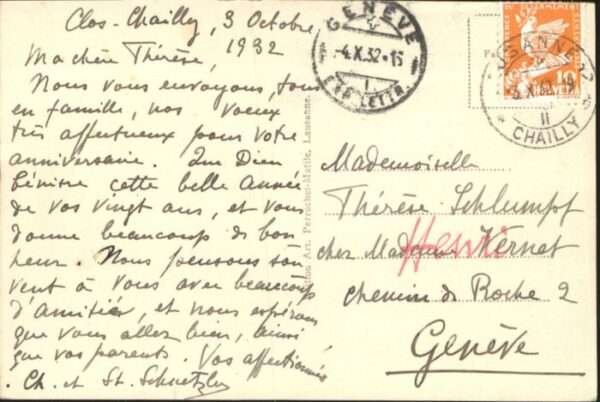 Clos-Chailly, 3 Octobre,
1932
Ma chère Thérèse,
Nous vous envoyons, tous
en famille, nos voeux
très affectueux pour votre
anniversaire. Que Dieu
bénisse cette belle année
de vos vingt ans, et vous
donne beaucoup de bon
heur. Nous pensons sou
vent à vous avec beaucoup
d'amitiés, et nous espérons
que vous allez bien, ainsi
que vos parents. Vos affectionnés
Ch. et St. Schnetzler
GENÈVE
-4.X.32-15
1
EXP. LETTR.
LAUSANNE
3.X.32.19
II
CHAILLY
Art. Perrochet-Matile, Lausanne.
Mademoiselle
Thérèse Schlumpf
chez Madame Kernat
Henri
Chemin de Roche 2
Genève